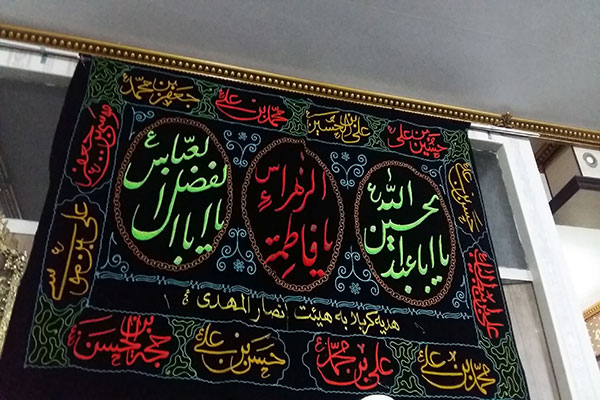 حسین بن علی ع
علی بن الحسین ع
محمد بن علی ع
جعفر بن محمد ع
حسن بن علی ع
یا اباعبدالله الحسین ع
یا فاطمة الزهراء س
یا اباالفضل العباس ع
موسی بن جعفر ع
علی بن موسی ع
هدیه کربلا به هیئت انصار المهدی
محمد بن علی ع
علی بن محمد ع
حسن بن علی ع
حجة بن الحسن ع